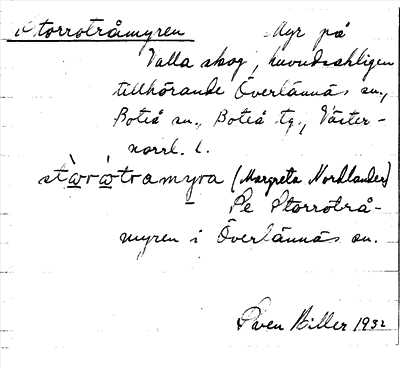 Storrotråmyren Myr på
Valla skog, huvudsakligen
tillhörande Överlännäs sn.,
Boteå sn., Boteå tg., Väster-
norrl. l.
(Margreta Nordlander)
Se Storrotrå-
myren i Överlännäs sn.
Sven Biller 1932